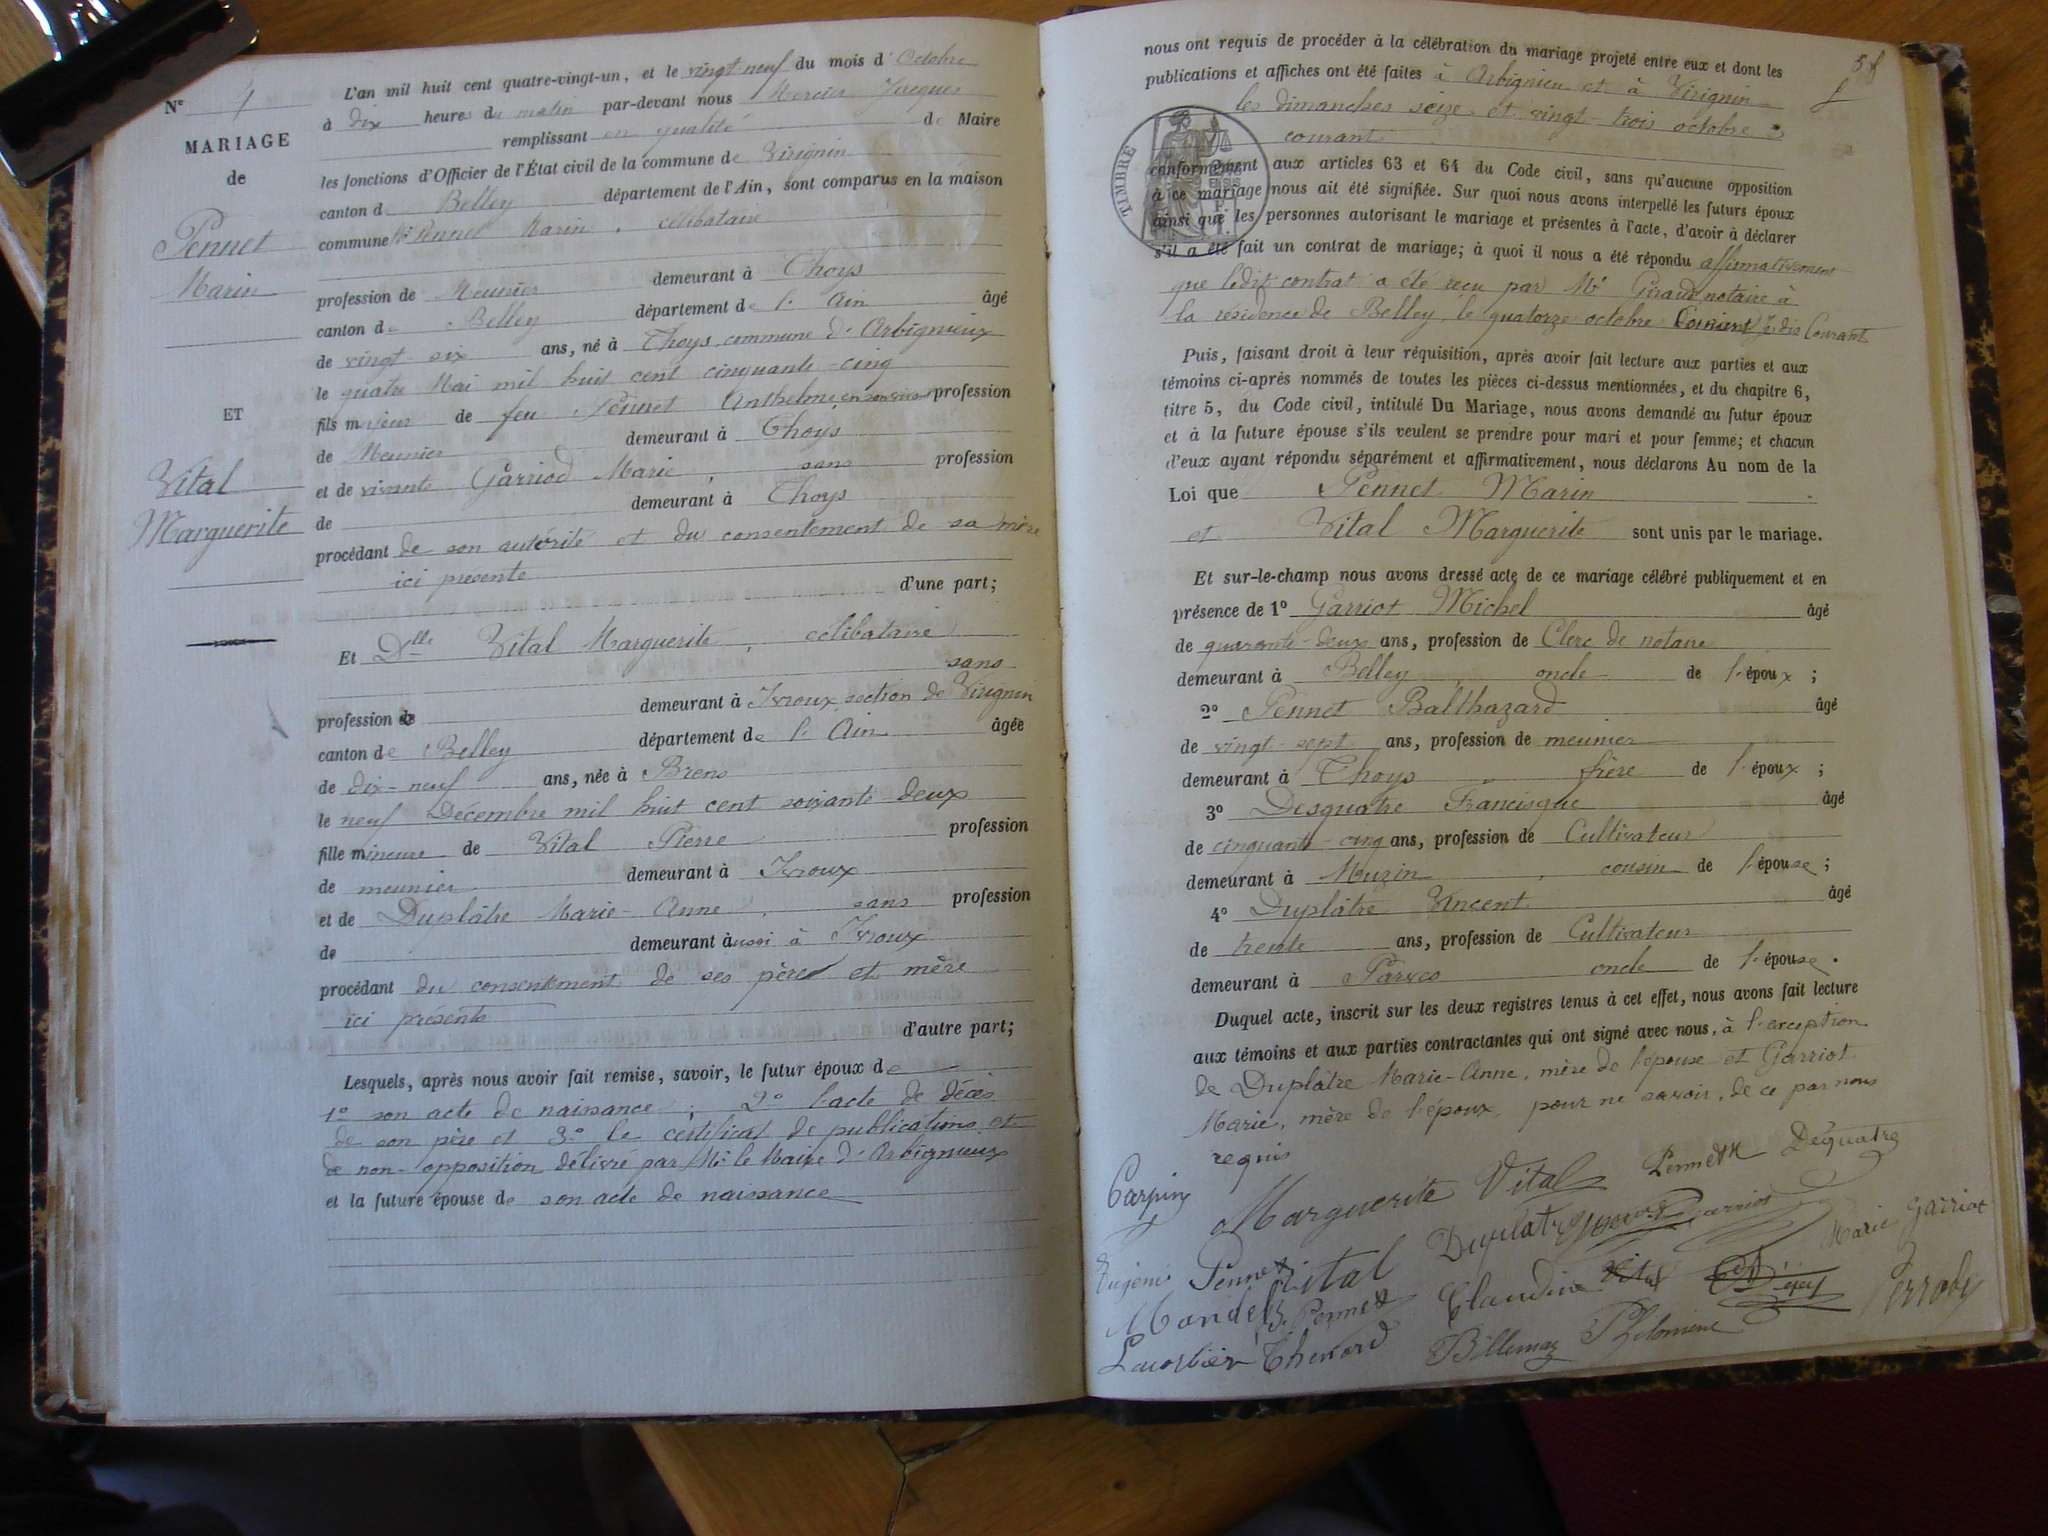 N° 4
MARIAGE
de
Pennet
Marin
ET
Vital
Marguerite
L'an mil huit cent quatre-vingt-un, et le vingt neuf du mois d'Octobre
à dix heures du matin par-devant nous Mercier Jacques
remplissant en qualité de Maire
les fonctions d'Officier de l'État civil de la commune de Virignin
canton de Belley département de l'Ain, sont comparus en la maison
commune Mr Pennet Marin, célibataire
profession de Meunier demeurant à Thoys
canton de Belley département de l'Ain âgé
de vingt-six ans, né à Thoys, commune d'Arbignieux
le quatre Mai mil huit cent cinquante-cinq
fils majeur de feu Pennet Anthelme, en son vivant profession
de Meunier demeurant à Thoys
et de vivante Garriod Marie, sans profession
de demeurant à Thoys
procédant de son autorité et du consentement de sa mère
ici présente
d'une part;
Et Dlle Vital Marguerite, célibataire
sans
profession de demeurant à Ivroux, section de Virignin
canton de Belley département de l'Ain âgée
de dix-neuf ans, née à Brens
le neuf Décembre mil huit cent soixante deux
fille mineure de Vital Pierre profession
de meunier demeurant à Ivroux
et de Duplâtre Marie-Anne, sans profession
de demeurant aussi à Ivroux
procédant du consentement de ses père et mère
ici présents
d'autre part;
Lesquels, après nous avoir fait remise, savoir, le futur époux de
1° son acte de naissance; 2° l'acte de décès
de son père et 3° le certificat de publications et
de non-opposition délivré par Mr le Maire d'Arbignieux
et la future épouse de son acte de naissance
58
nous ont requis de procéder à la célébration du mariage projeté entre eux et dont les
publications et affiches ont été faites à Arbignieu et à Virignin
les dimanches seize et vingt-trois octobre
courant
TIMBRE
conformément aux articles 63 et 64 du Code civil, sans qu'aucune opposition
à ce mariage nous ait été signifiée. Sur quoi nous avons interpellé les futurs époux
ainsi que les personnes autorisant le mariage et présentes à l'acte, d'avoir à déclarer
s'il a été fait un contrat de mariage; à quoi il nous a été répondu affirmativement
que ledit contrat a été reçu par Me Giraud notaire à
la résidence de Belley, le quatorze octobre Courant Je dis Courant
Puis, faisant droit à leur réquisition, après avoir fait lecture aux parties et aux
témoins ci-après nommés de toutes les pièces ci-dessus mentionnées, et du chapitre 6,
titre 5, du Code civil, intitulé Du Mariage, nous avons demandé au futur époux
et à la future épouse s'ils veulent se prendre pour mari et pour femme; et chacun
d'eux ayant répondu séparément et affirmativement, nous déclarons Au nom de la
Loi que Pennet Marin
et Vital Marguerite sont unis par le mariage.
Et sur-le-champ nous avons dressé acte de ce mariage célébré publiquement et en
présence de 1° Garriot Michel âgé
de quarante-deux ans, profession de Clerc de notaire
demeurant à Belley, oncle de l'époux;
2° Pennet Balthazard âgé
de vingt-sept ans, profession de meunier
demeurant à Thoys, frère de l'époux;
3° Desquatre Francisque âgé
de cinquante-cinq ans, profession de Cultivateur
demeurant à Muzin, cousin de l'épouse;
4° Duplâtre Vincent âgé
de trente ans, profession de Cultivateur
demeurant à Parves oncle de l'épouse.
Duquel acte, inscrit sur les deux registres tenus à cet effet, nous avons fait lecture
aux témoins et aux parties contractantes qui ont signé avec nous, à l'exception
de Duplâtre Marie-Anne, mère de l'épouse et Garriot
Marie, mère de l'époux, pour ne savoir, de ce par nous
requis
Carpin Marguerite Vital Pennet Déquatre
Duplatre Garriot Marie Garriot
Eugénie Pennet Vital Claudine Vital
B. Pennet
Thenard Billemaz Philomène